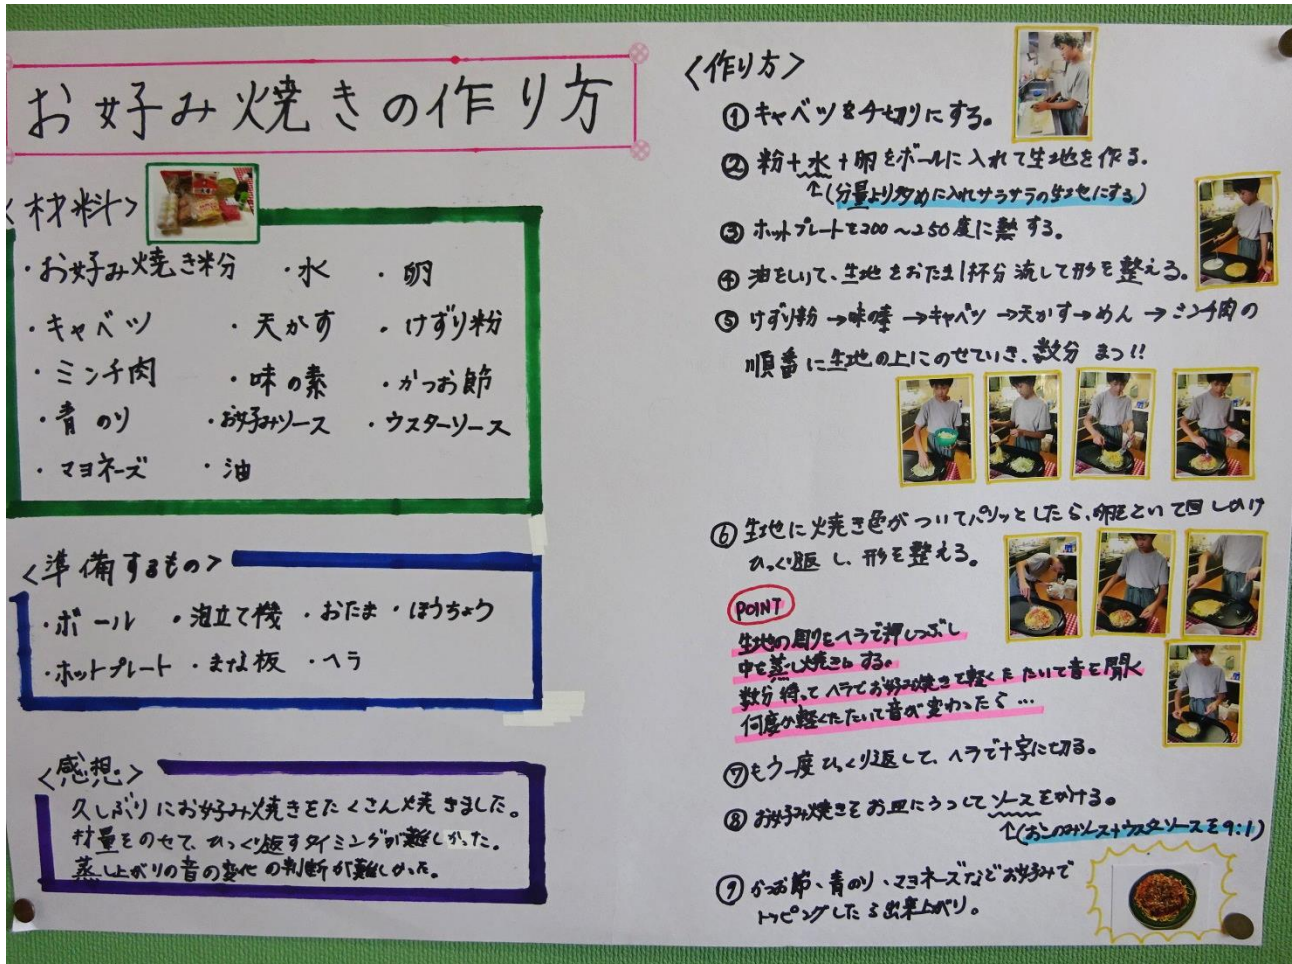 お好み焼きの作り方
<材料>
・お好み焼き粉 ・水 ・卵
・キャベツ ・天かす ・けずり粉
・ミンチ肉 ・味の素 ・かつお節
・青のり ・お好みソース ・ウスターソース
・マヨネーズ ・油
<準備するもの>
・ボール ・泡立て機 ・おたま ・ほうちょう
・ホットプレート ・まな板 ・ヘラ
<感想>
久しぶりにお好み焼きをたくさん焼きました。
材量をのせて、ひっくり返すタイミングが難しかった。
蒸し上がりの音の変化の判断が難しかった。
<作り方>
①キャベツを千切りにする。
②粉+水+卵をボールに入れて生地を作る。
↑(分量より多めに入れサラサラの生地にする)
③ホットプレートを200～250度に熱する。
④油をしいて、生地をおたま1杯分流して形を整える。
⑤けずり粉→味の素→キャベツ→天かす→めん→ミンチ肉の
順番に生地の上にのせていき、数分まつ!!
⑥生地に焼き色がついてパリッとしたら、卵をといて回しかけ
ひっくり返し、形を整える。
POINT
生地の周りをヘラで押しつぶし
中を蒸し焼きにする。
数分待ってヘラでお好み焼きを軽くたたいて音を聞く
何度か軽くたたいて音が変わったら…
⑦もう一度ひっくり返して、ヘラで十字に切る。
⑧お好み焼きをお皿にうつしてソースをかける。
↑(おこのみソース+ウスターソースを9:1)
⑨かつお節、青のり、マヨネーズなどお好みで
トッピングしたら出来上がり。